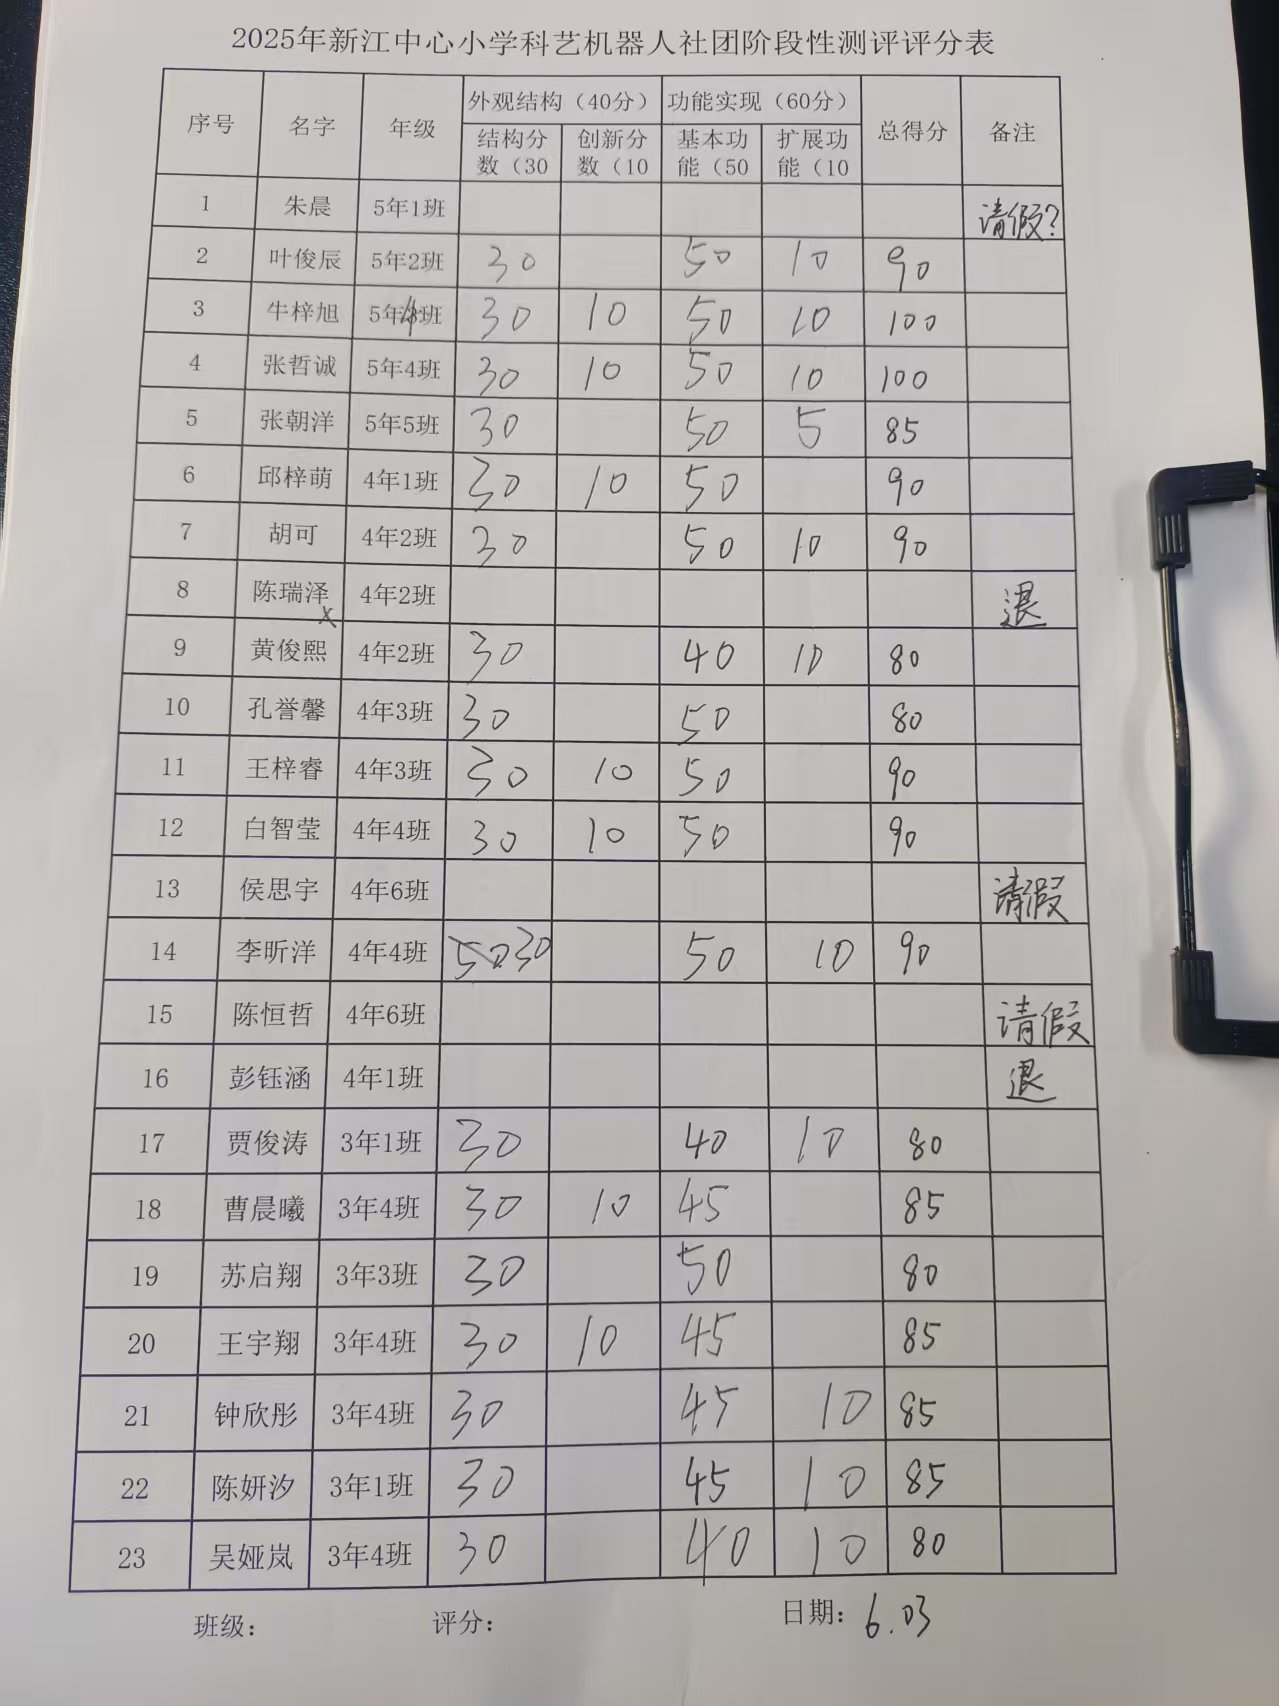 2025年新江中心小学科艺机器人社团阶段性测评评分表
序号 名字 年级 外观结构（40分） 功能实现（60分） 总得分 备注
结构分数（30 创新分数（10 基本功能（50 扩展功能（10
1 朱晨 5年1班 请假?
2 叶俊辰 5年2班 30 50 10 90
3 牛梓旭 5年4班 30 10 50 10 100
4 张哲诚 5年4班 30 10 50 10 100
5 张朝洋 5年5班 30 50 5 85
6 邱梓萌 4年1班 30 10 50 90
7 胡可 4年2班 30 50 10 90
8 陈瑞泽 x 4年2班 退
9 黄俊熙 4年2班 30 40 10 80
10 孔誉馨 4年3班 30 50 80
11 王梓睿 4年3班 30 10 50 90
12 白智莹 4年4班 30 10 50 90
13 侯思宇 4年6班 请假
14 李昕洋 4年4班 50 30 50 10 90
15 陈恒哲 4年6班 请假
16 彭钰涵 4年1班 退
17 贾俊涛 3年1班 30 40 10 80
18 曹晨曦 3年4班 30 10 45 85
19 苏启翔 3年3班 30 50 80
20 王宇翔 3年4班 30 10 45 85
21 钟欣彤 3年4班 30 45 10 85
22 陈妍汐 3年1班 30 45 10 85
23 吴娅岚 3年4班 30 40 10 80
班级： 评分： 日期：6.03